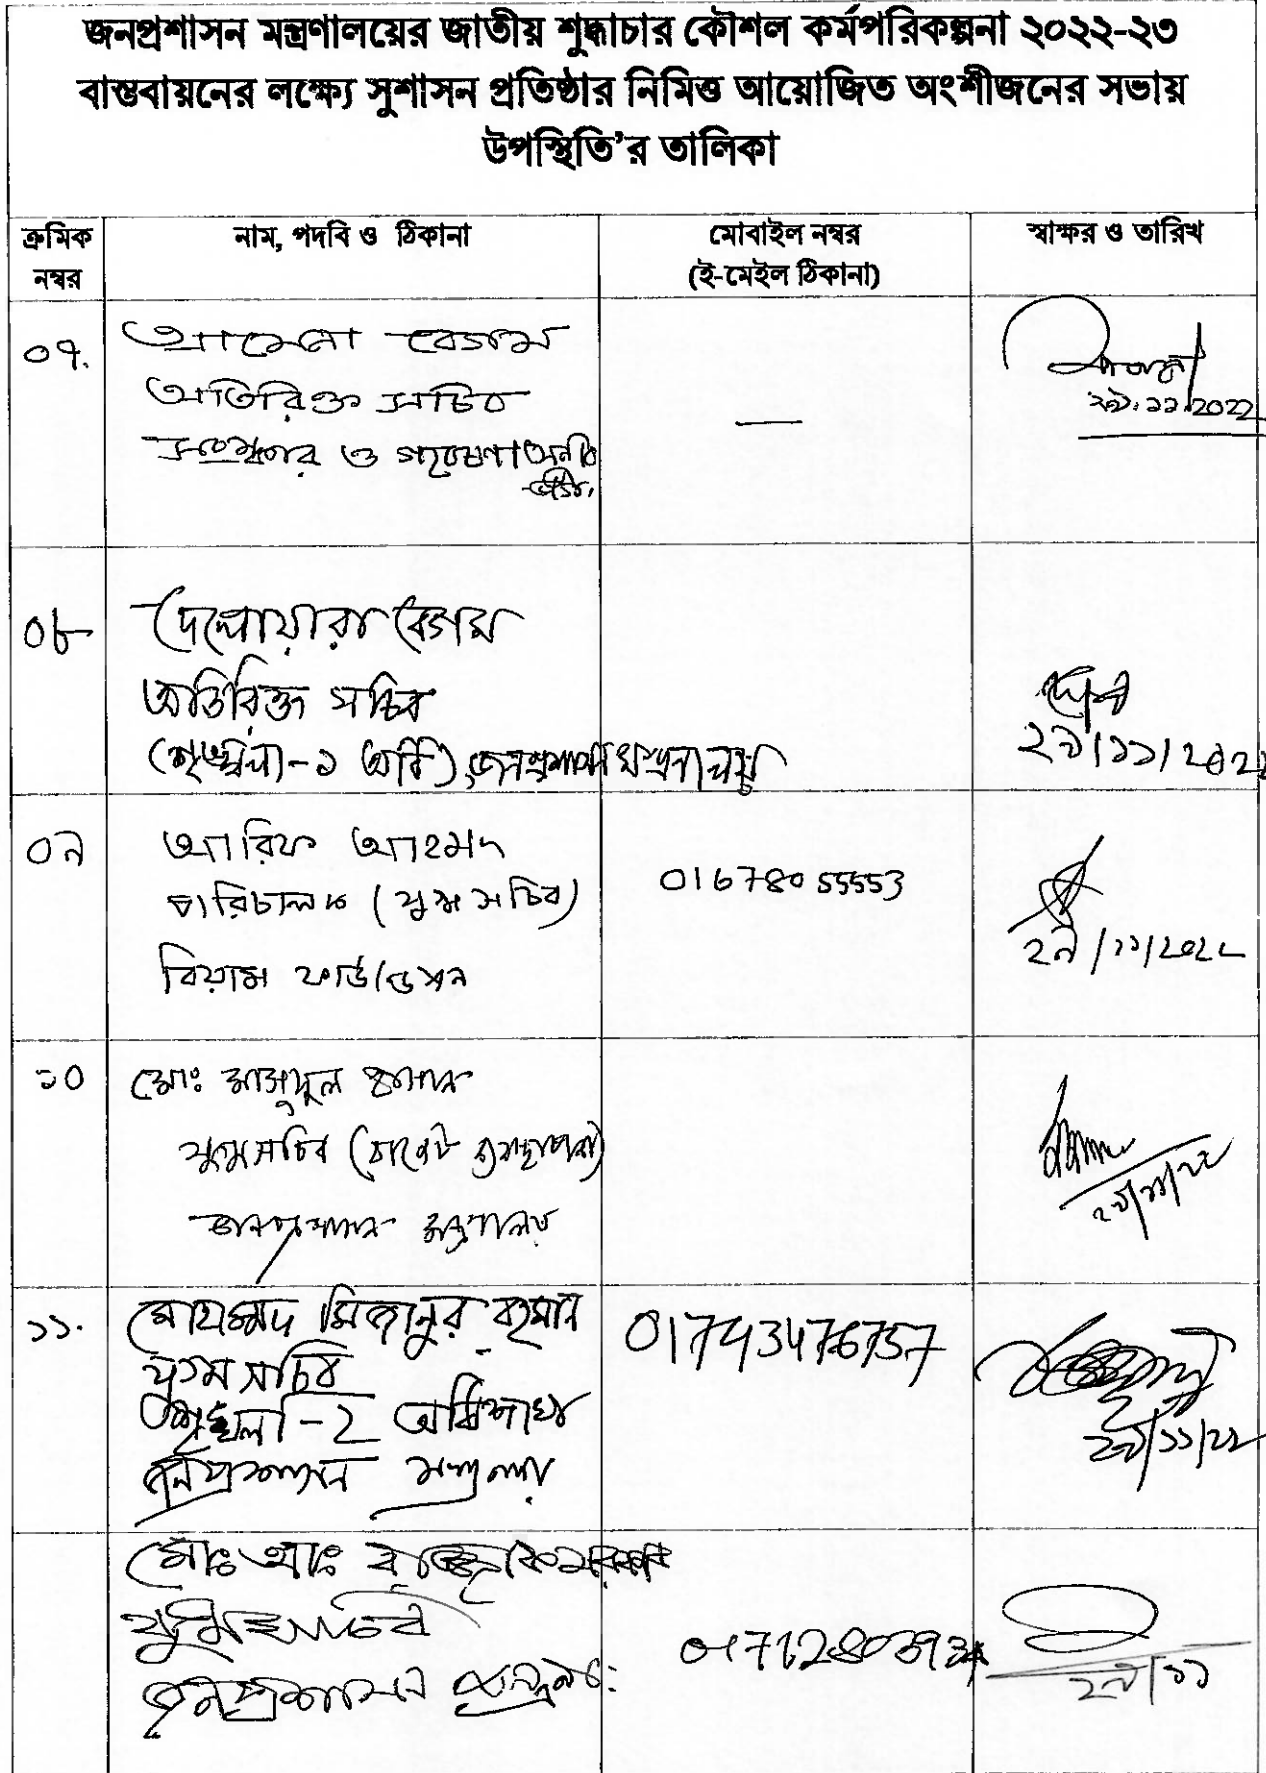 জনপ্রশাসন মন্ত্রণালয়ের জাতীয় শুদ্ধাচার কৌশল কর্মপরিকল্পনা ২০২২-২৩
বাস্তবায়নের লক্ষ্যে সুশাসন প্রতিষ্ঠার নিমিত্ত আয়োজিত অংশীজনের সভায়
উপস্থিতি’র তালিকা
ক্রমিক নম্বর
নাম, পদবি ও ঠিকানা
মোবাইল নম্বর
(ই-মেইল ঠিকানা)
স্বাক্ষর ও তারিখ
০৭.
আমেনা বেগম
অতিরিক্ত সচিব
সংস্কার ও গবেষণা অনুবিভাগ
—
২৯.১১.2022
০৮
দেলোয়ারা বেগম
অতিরিক্ত সচিব
(শৃঙ্খলা-১ অধি), জনপ্রশাসন মন্ত্রনালয়
২৯/১১/২০২২
০৯
আরিফ আহমদ
পরিচালক (যুগ্ম সচিব)
বিয়াম ফাউন্ডেশন
01678055553
২৯/১১/২০২২
১০
মোঃ মাসুদুল হাসান
যুগ্মসচিব (বাজেট ব্যবস্থাপনা)
জনপ্রশাসন মন্ত্রণালয়
২৯/১১/২২
১১.
মোহাম্মদ মিজানুর রহমান
যুগ্ম সচিব
শৃঙ্খলা-২ অধিশাখা
জনপ্রশাসন মন্ত্রণালয়
01743476757
২৯/১১/২২
মোঃ আঃ
যুগ্মসচিব
জনপ্রশাসন
২৯/১১